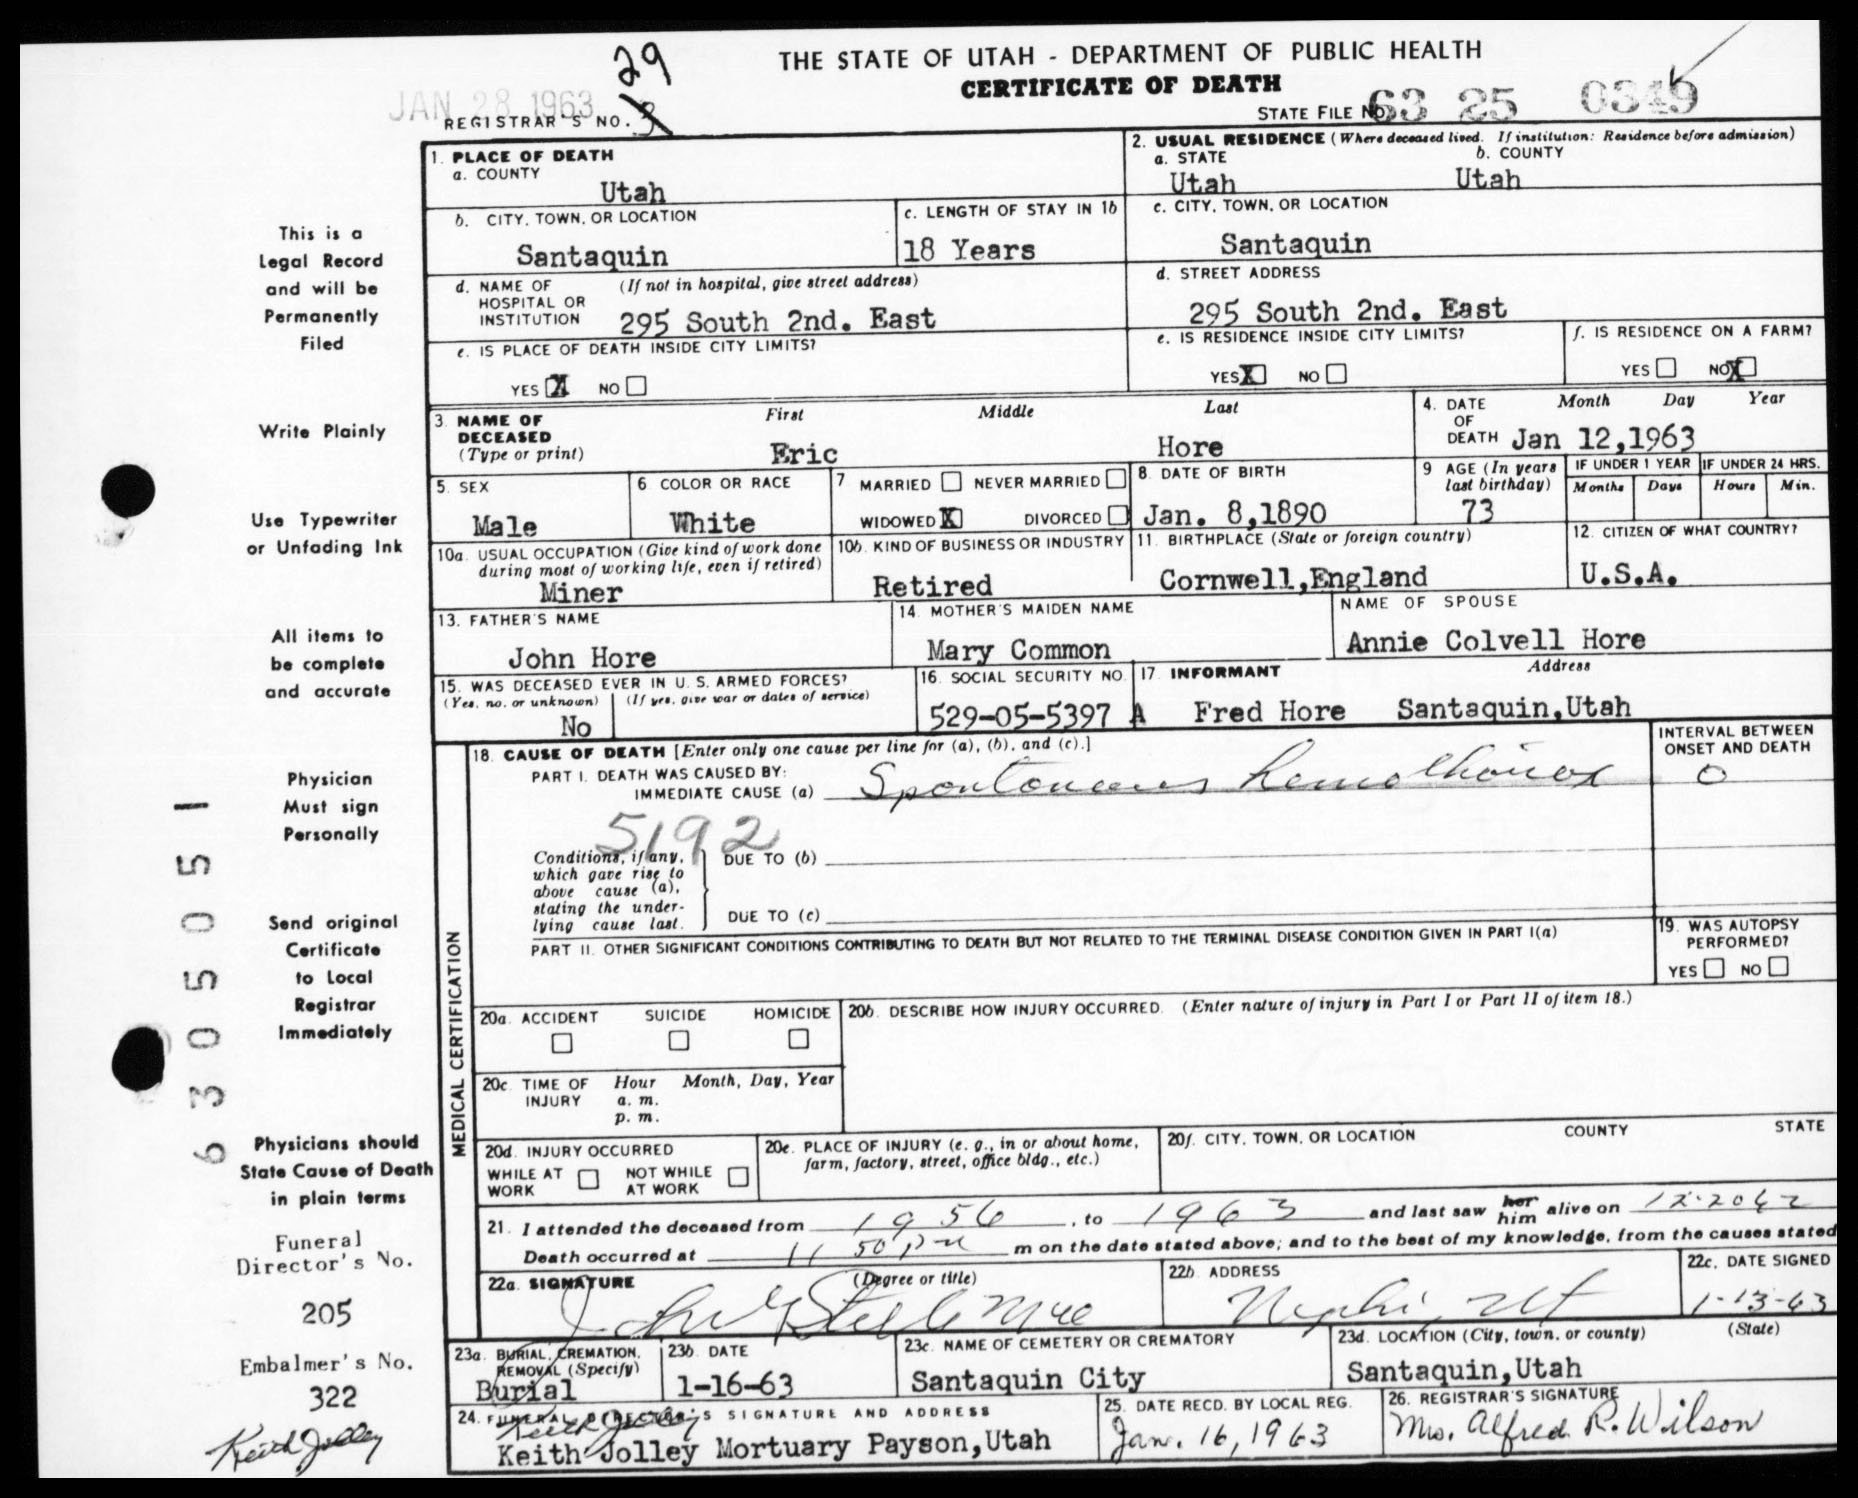 THE STATE OF UTAH - DEPARTMENT OF PUBLIC HEALTH
CERTIFICATE OF DEATH
JAN 28 1963
29
REGISTRAR'S NO. 3
STATE FILE NO. 63 25 0349
1. PLACE OF DEATH
a. COUNTY
Utah
2. USUAL RESIDENCE (Where deceased lived. If institution: Residence before admission)
a. STATE b. COUNTY
Utah Utah
b. CITY, TOWN, OR LOCATION
Santaquin
c. LENGTH OF STAY IN 1b
18 Years
c. CITY, TOWN, OR LOCATION
Santaquin
d. NAME OF HOSPITAL OR INSTITUTION (If not in hospital, give street address)
295 South 2nd. East
d. STREET ADDRESS
295 South 2nd. East
e. IS PLACE OF DEATH INSIDE CITY LIMITS?
YES X NO
e. IS RESIDENCE INSIDE CITY LIMITS?
YES X NO
f. IS RESIDENCE ON A FARM?
YES NO X
3. NAME OF DECEASED (Type or print)
First Middle Last
Eric Hore
4. DATE OF DEATH Month Day Year
Jan 12,1963
5. SEX
Male
6 COLOR OR RACE
White
7 MARRIED NEVER MARRIED
WIDOWED X DIVORCED
8. DATE OF BIRTH
Jan. 8,1890
9 AGE (In years last birthday)
73
IF UNDER 1 YEAR
Months Days
IF UNDER 24 HRS.
Hours Min.
10a. USUAL OCCUPATION (Give kind of work done during most of working life, even if retired)
Miner
10b. KIND OF BUSINESS OR INDUSTRY
Retired
11. BIRTHPLACE (State or foreign country)
Cornwell,England
12. CITIZEN OF WHAT COUNTRY?
U.S.A.
13. FATHER'S NAME
John Hore
14. MOTHER'S MAIDEN NAME
Mary Common
NAME OF SPOUSE
Annie Colvell Hore
15. WAS DECEASED EVER IN U. S. ARMED FORCES?
(Yes, no, or unknown) (If yes, give war or dates of service)
No
16. SOCIAL SECURITY NO.
529-05-5397 A
17. INFORMANT Address
Fred Hore Santaquin,Utah
MEDICAL CERTIFICATION
18. CAUSE OF DEATH [Enter only one cause per line for (a), (b), and (c).]
INTERVAL BETWEEN ONSET AND DEATH
PART I. DEATH WAS CAUSED BY:
IMMEDIATE CAUSE (a) Spontaneous hemothorax
0
5192
Conditions, if any, which gave rise to above cause (a), stating the underlying cause last.
DUE TO (b)
DUE TO (c)
PART II. OTHER SIGNIFICANT CONDITIONS CONTRIBUTING TO DEATH BUT NOT RELATED TO THE TERMINAL DISEASE CONDITION GIVEN IN PART I(a)
19. WAS AUTOPSY PERFORMED?
YES NO
20a. ACCIDENT SUICIDE HOMICIDE
20b. DESCRIBE HOW INJURY OCCURRED. (Enter nature of injury in Part I or Part II of item 18.)
20c. TIME OF INJURY Hour Month, Day, Year
a. m.
p. m.
20d. INJURY OCCURRED
WHILE AT WORK NOT WHILE AT WORK
20e. PLACE OF INJURY (e. g., in or about home, farm, factory, street, office bldg., etc.)
20f. CITY, TOWN, OR LOCATION COUNTY STATE
21. I attended the deceased from 1956, to 1963 and last saw her him alive on 12-20-62
Death occurred at 11 50 pm m on the date stated above; and to the best of my knowledge, from the causes stated
22a. SIGNATURE (Degree or title)
John Steele
22b. ADDRESS
Nephi, Ut
22c. DATE SIGNED
1-13-63
23a. BURIAL, CREMATION, REMOVAL (Specify)
Burial
23b. DATE
1-16-63
23c. NAME OF CEMETERY OR CREMATORY
Santaquin City
23d. LOCATION (City, town, or county) (State)
Santaquin,Utah
24. FUNERAL DIRECTOR'S SIGNATURE AND ADDRESS
Keith Jolley
Keith Jolley Mortuary Payson,Utah
25. DATE RECD. BY LOCAL REG.
Jan. 16, 1963
26. REGISTRAR'S SIGNATURE
Mrs. Alfred R. Wilson
This is a
Legal Record
and will be
Permanently
Filed
Write Plainly
Use Typewriter
or Unfading Ink
All items to
be complete
and accurate
Physician
Must sign
Personally
Send original
Certificate
to Local
Registrar
Immediately
Physicians should
State Cause of Death
in plain terms
Funeral
Director's No.
205
Embalmer's No.
322
Keith Jolley
6305051